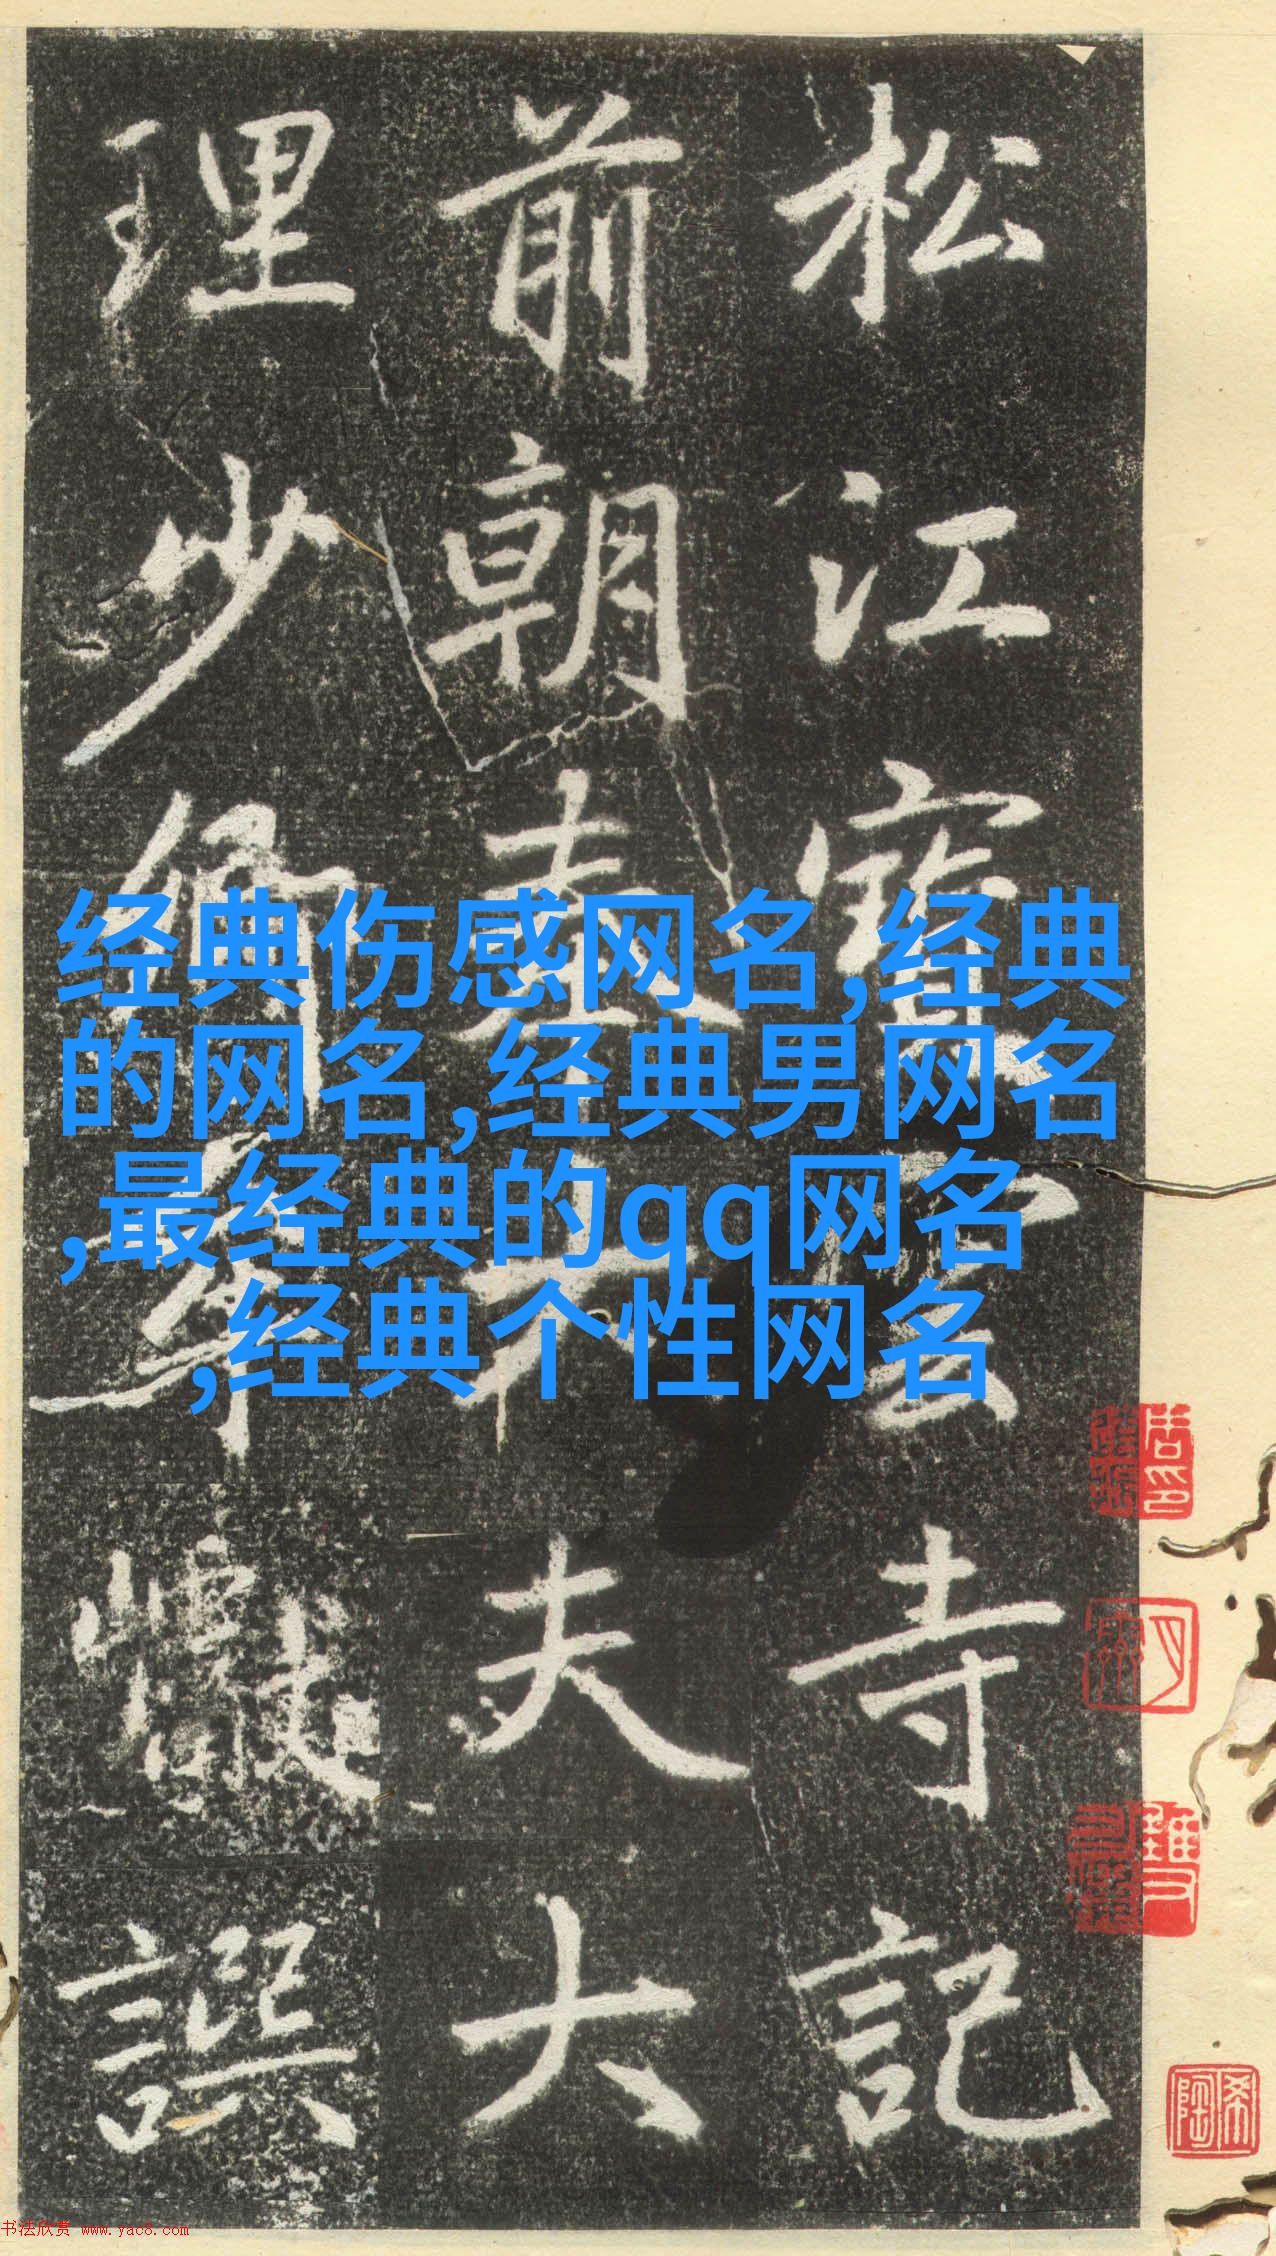 松江寶雲寺記
前朝奉大夫大
理少卿牟巘譔
经典伤感网名,经典
的网名,经典男网名
,最经典的qq网名
,经典个性网名
希陶
书法欣赏 www.yac8.com